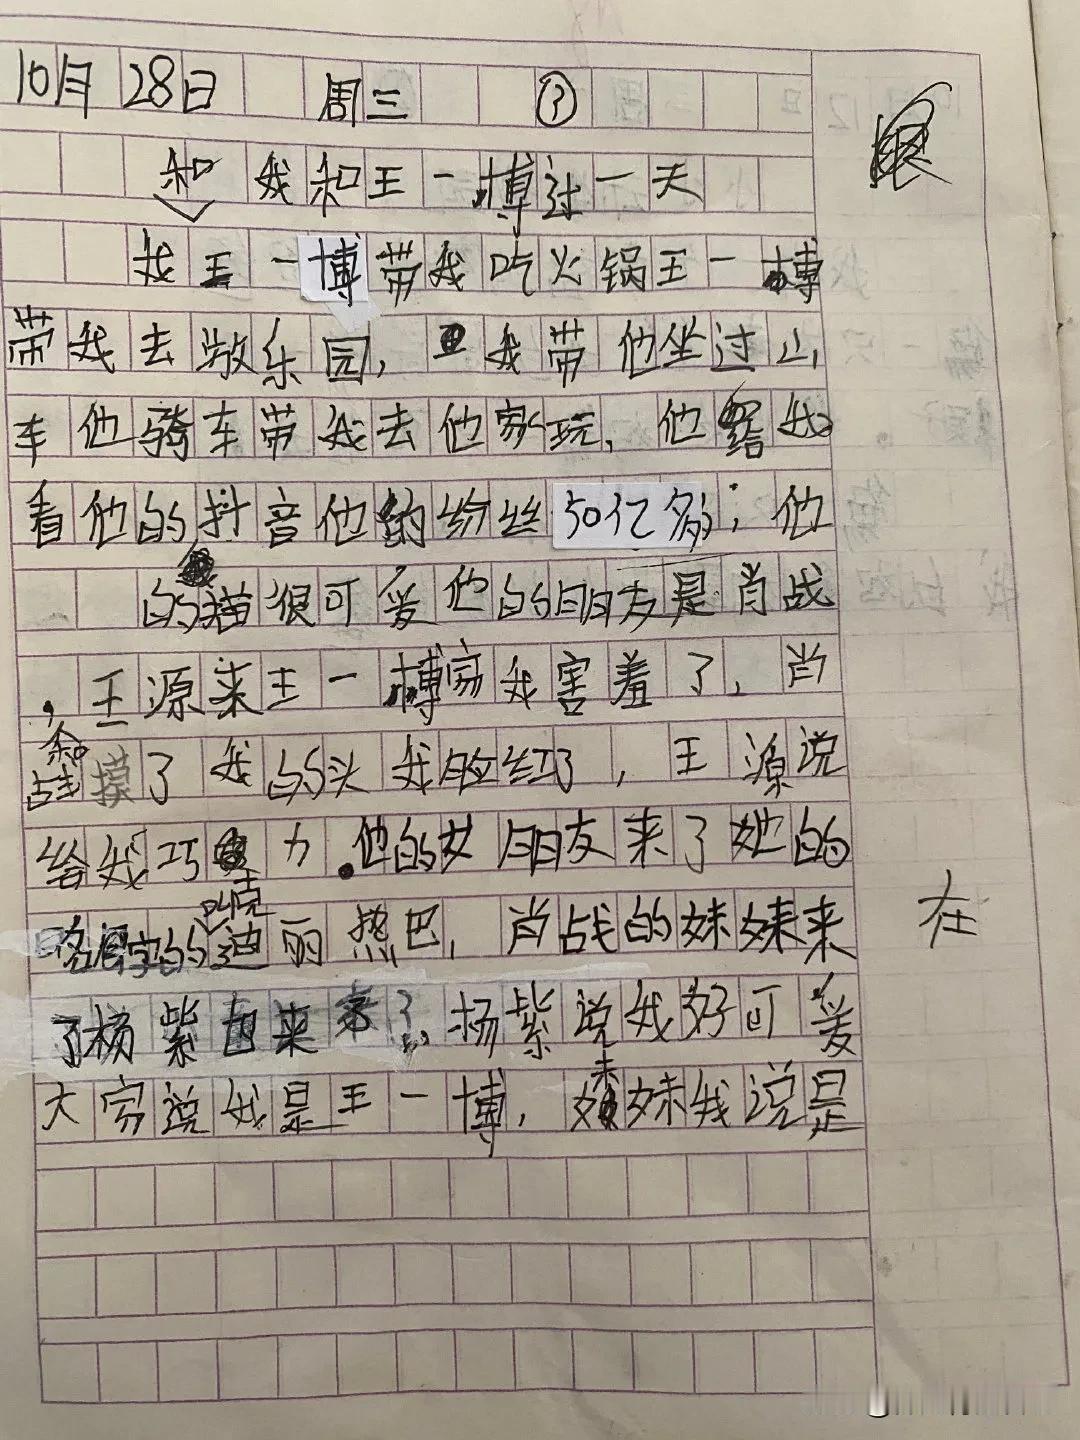 10月28日 周三 ③
和我和王一博过一天
我王一博带我吃火锅王一博
带我去游乐园，我带他坐过山
车他骑车带我去他家玩，他给我
看他的抖音他的粉丝50亿多；他
的猫很可爱他的朋友是肖战
，王源来王一博家我害羞了，肖
战摸了我的头我脸红了，王源说
给我巧克力．他的女朋友来了她的
名字的迪丽热巴，肖战的妹妹来
了杨紫也来了，杨紫说我好可爱
大家说我是王一博，妹妹我说是
在